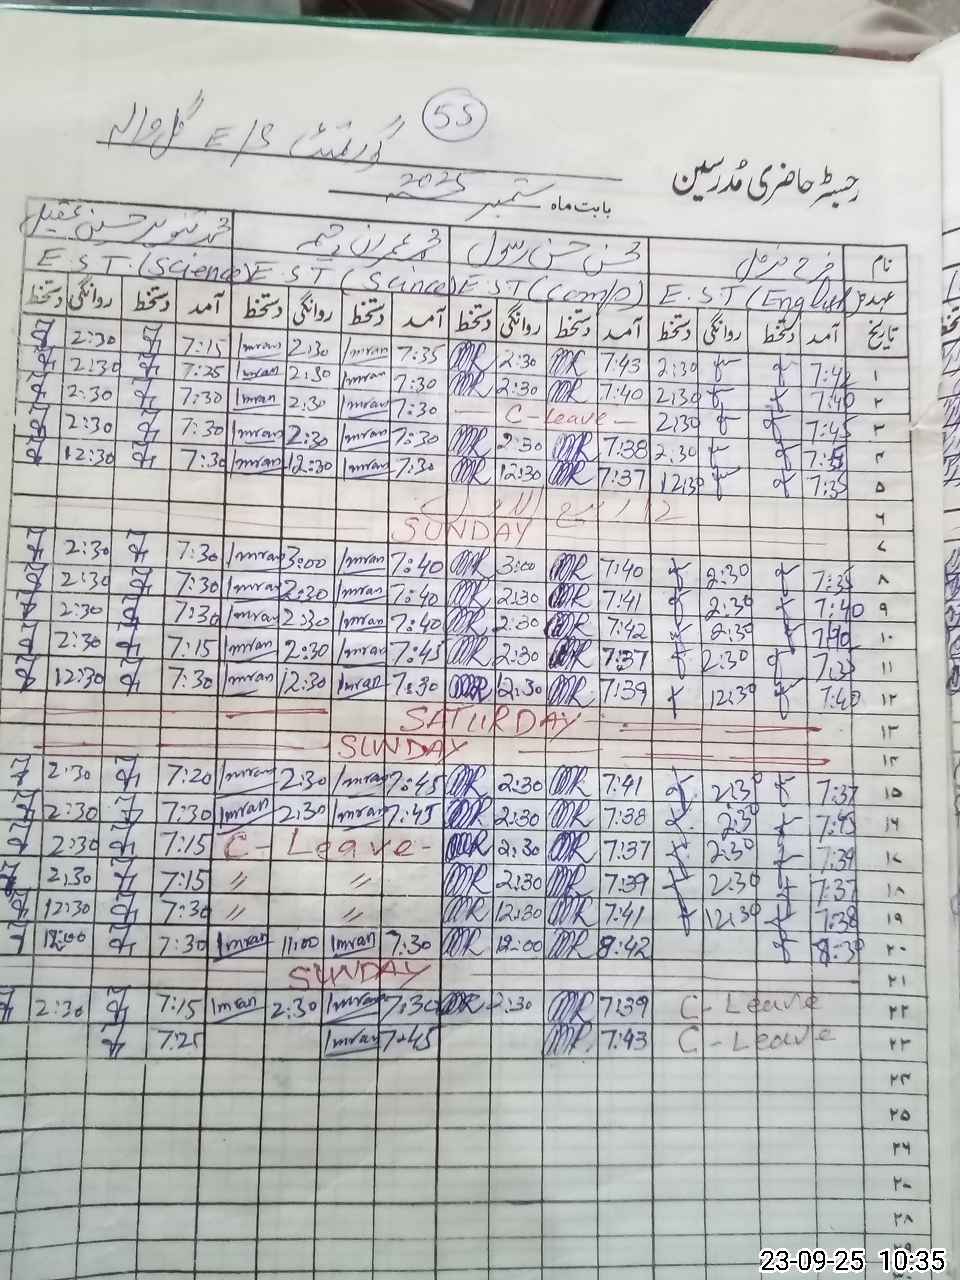 55
گورنمنٹ E/S
رجسٹر حاضری مدرسین
بابت ماہ ستمبر 2025
نام محسن حسن رسول محمد عمران محمد تنویر حسین عقیل
عہدہ E.S.T (English) E.S.T (Comp) E.S.T (Science) E.S.T. (Science)
تاریخ آمد دستخط روانگی دستخط آمد دستخط روانگی دستخط آمد دستخط روانگی دستخط آمد دستخط روانگی دستخط
۱ 7:42 2:30 7:43 2:30 7:35 Imran 2:30 Imran 7:15 2:30
۲ 7:40 2:30 7:40 2:30 7:30 Imran 2:30 Imran 7:25 2:30
۳ 7:45 2:30 C-Leave 7:30 Imran 2:30 Imran 7:30 2:30
۴ 2:30 7:38 2:30 7:30 Imran 2:30 Imran 7:30 2:30
۵ 7:35 12:30 7:37 12:30 7:30 Imran 12:30 Imran 7:30 12:30
۶ 12 ربیع الاول
۷ SUNDAY
۸ 7:35 2:30 7:40 3:00 7:40 Imran 3:00 Imran 7:30 2:30
۹ 7:40 2:30 7:41 2:30 7:40 Imran 2:30 Imran 7:30 2:30
۱۰ 7:40 2:30 7:42 2:30 7:40 Imran 2:30 Imran 7:30 2:30
۱۱ 7:35 2:30 7:37 2:30 7:45 Imran 2:30 Imran 7:15 2:30
۱۲ 7:40 12:30 7:39 12:30 7:30 Imran 12:30 Imran 7:30 12:30
۱۳ SATURDAY
۱۴ SUNDAY
۱۵ 7:37 2:30 7:41 2:30 7:45 Imran 2:30 Imran 7:20 2:30
۱۶ 7:45 2:30 7:38 2:30 7:45 Imran 2:30 Imran 7:30 2:30
۱۷ 7:39 2:30 7:37 2:30 C-Leave- 7:15 2:30
۱۸ 7:37 2:30 7:39 2:30 〃 〃 7:15 2:30
۱۹ 7:38 12:30 7:41 12:30 〃 〃 7:30 12:30
۲۰ 8:30 8:42 12:00 7:30 Imran 11:00 Imran 7:30 12:00
۲۱ SUNDAY
۲۲ C-Leave 7:39 2:30 7:30 Imran 2:30 Imran 7:15 2:30
۲۳ C-Leave 7:43 7:45 Imran 7:25
۲۴
۲۵
۲۶
۲۷
۲۸
۲۹
23-09-25 10:35